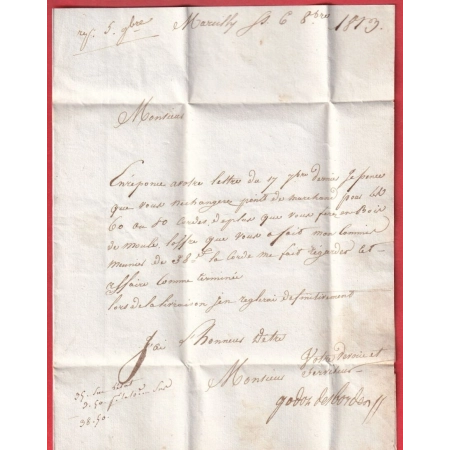 rep. 5. 9bre
Marcilly le 6 8bre 1813.
Monsieur
En réponse a votre lettre du 17 7bre dernier Je pense
que vous ne changerez point de marchand pour les
60 ou 80 cordes de plus que vous ferez en Bois
de moule, l'offre que vous a fait mon Commis
munier de 38 la Corde me fait regarder cet
affaire comme terminée
lors de la livraison j'en reglerai definitivement
J'ai l'honneur d'etre
Votre devoué et
Serviteur
Monsieur
38-50